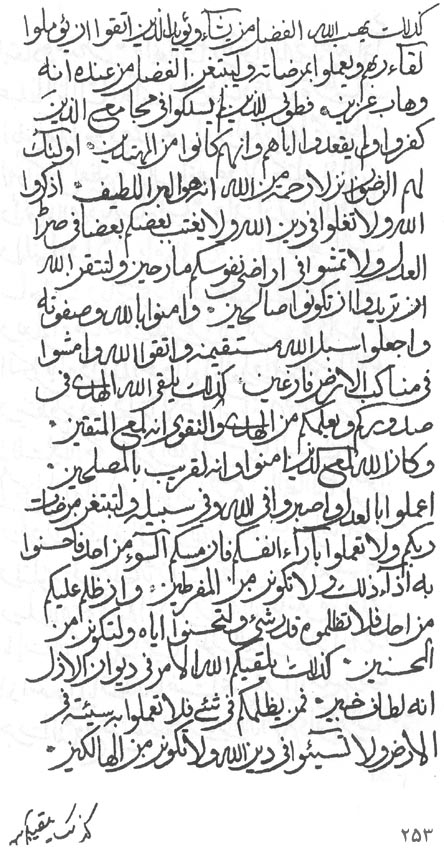 كذلك يهب الله الفضل من يشآء ويؤيد الذين اتقوا ان يؤملوا
لقآء ربهم ويعملوا بمرضاته وليبتغن الفضل من عنده انه
وهاب عزيز فطوبى للذين لم يسلكوا فى مجامع الذين
كفروا ولم يقعدوا اليهم وانهم كانوا من المهتدين اولئك
لهم الرضوان نزلا ورحمة من الله انه هو البر اللطيف اذكروا
الله ولا تغلوا فى دين الله ولا يغتب بعضكم بعضا فى
العدل ولا تمشوا فى اراضى نفوسكم مارحين ولتتقن الله
ان تريدوا ان تكونوا صالحين وامنوا بالله وصفوته
واجعلوا سبل الله مستقيمة واتقوا الله وامشوا
فى مناكب الارض فارغين كذلك يلقى الله الهدى فى
صدوركم ويعلمكم من الهدى والتقوى انه لمع المتقين
وكان الله لمع الذين امنوا وانه لقريب بالمصلحين
اعملوا بالعدل واصبروا فى الله وفى سبيله ولتبتغن مرضات
ربكم ولا تعملوا بآرآء انفسكم فان مسكم السوء من احد فاحسنوا
به اذاء ذلك ولا تكونن من المفرطين وان ظلم عليكم
من احد فلا تظلموه قدر شئ ولتحسنوا اياه ولتكونن من
المحسنين كذلك يلقيكم الله الامر فى ديوان الازل
انه لطاف خبير فمن يظلمكم فى شئ فلا تعملوا به سيئة فى
الارض ولا تسيئوا فى دين الله ولا تكونن من الهالكين
كذلك يلقيكم
٢٥٣